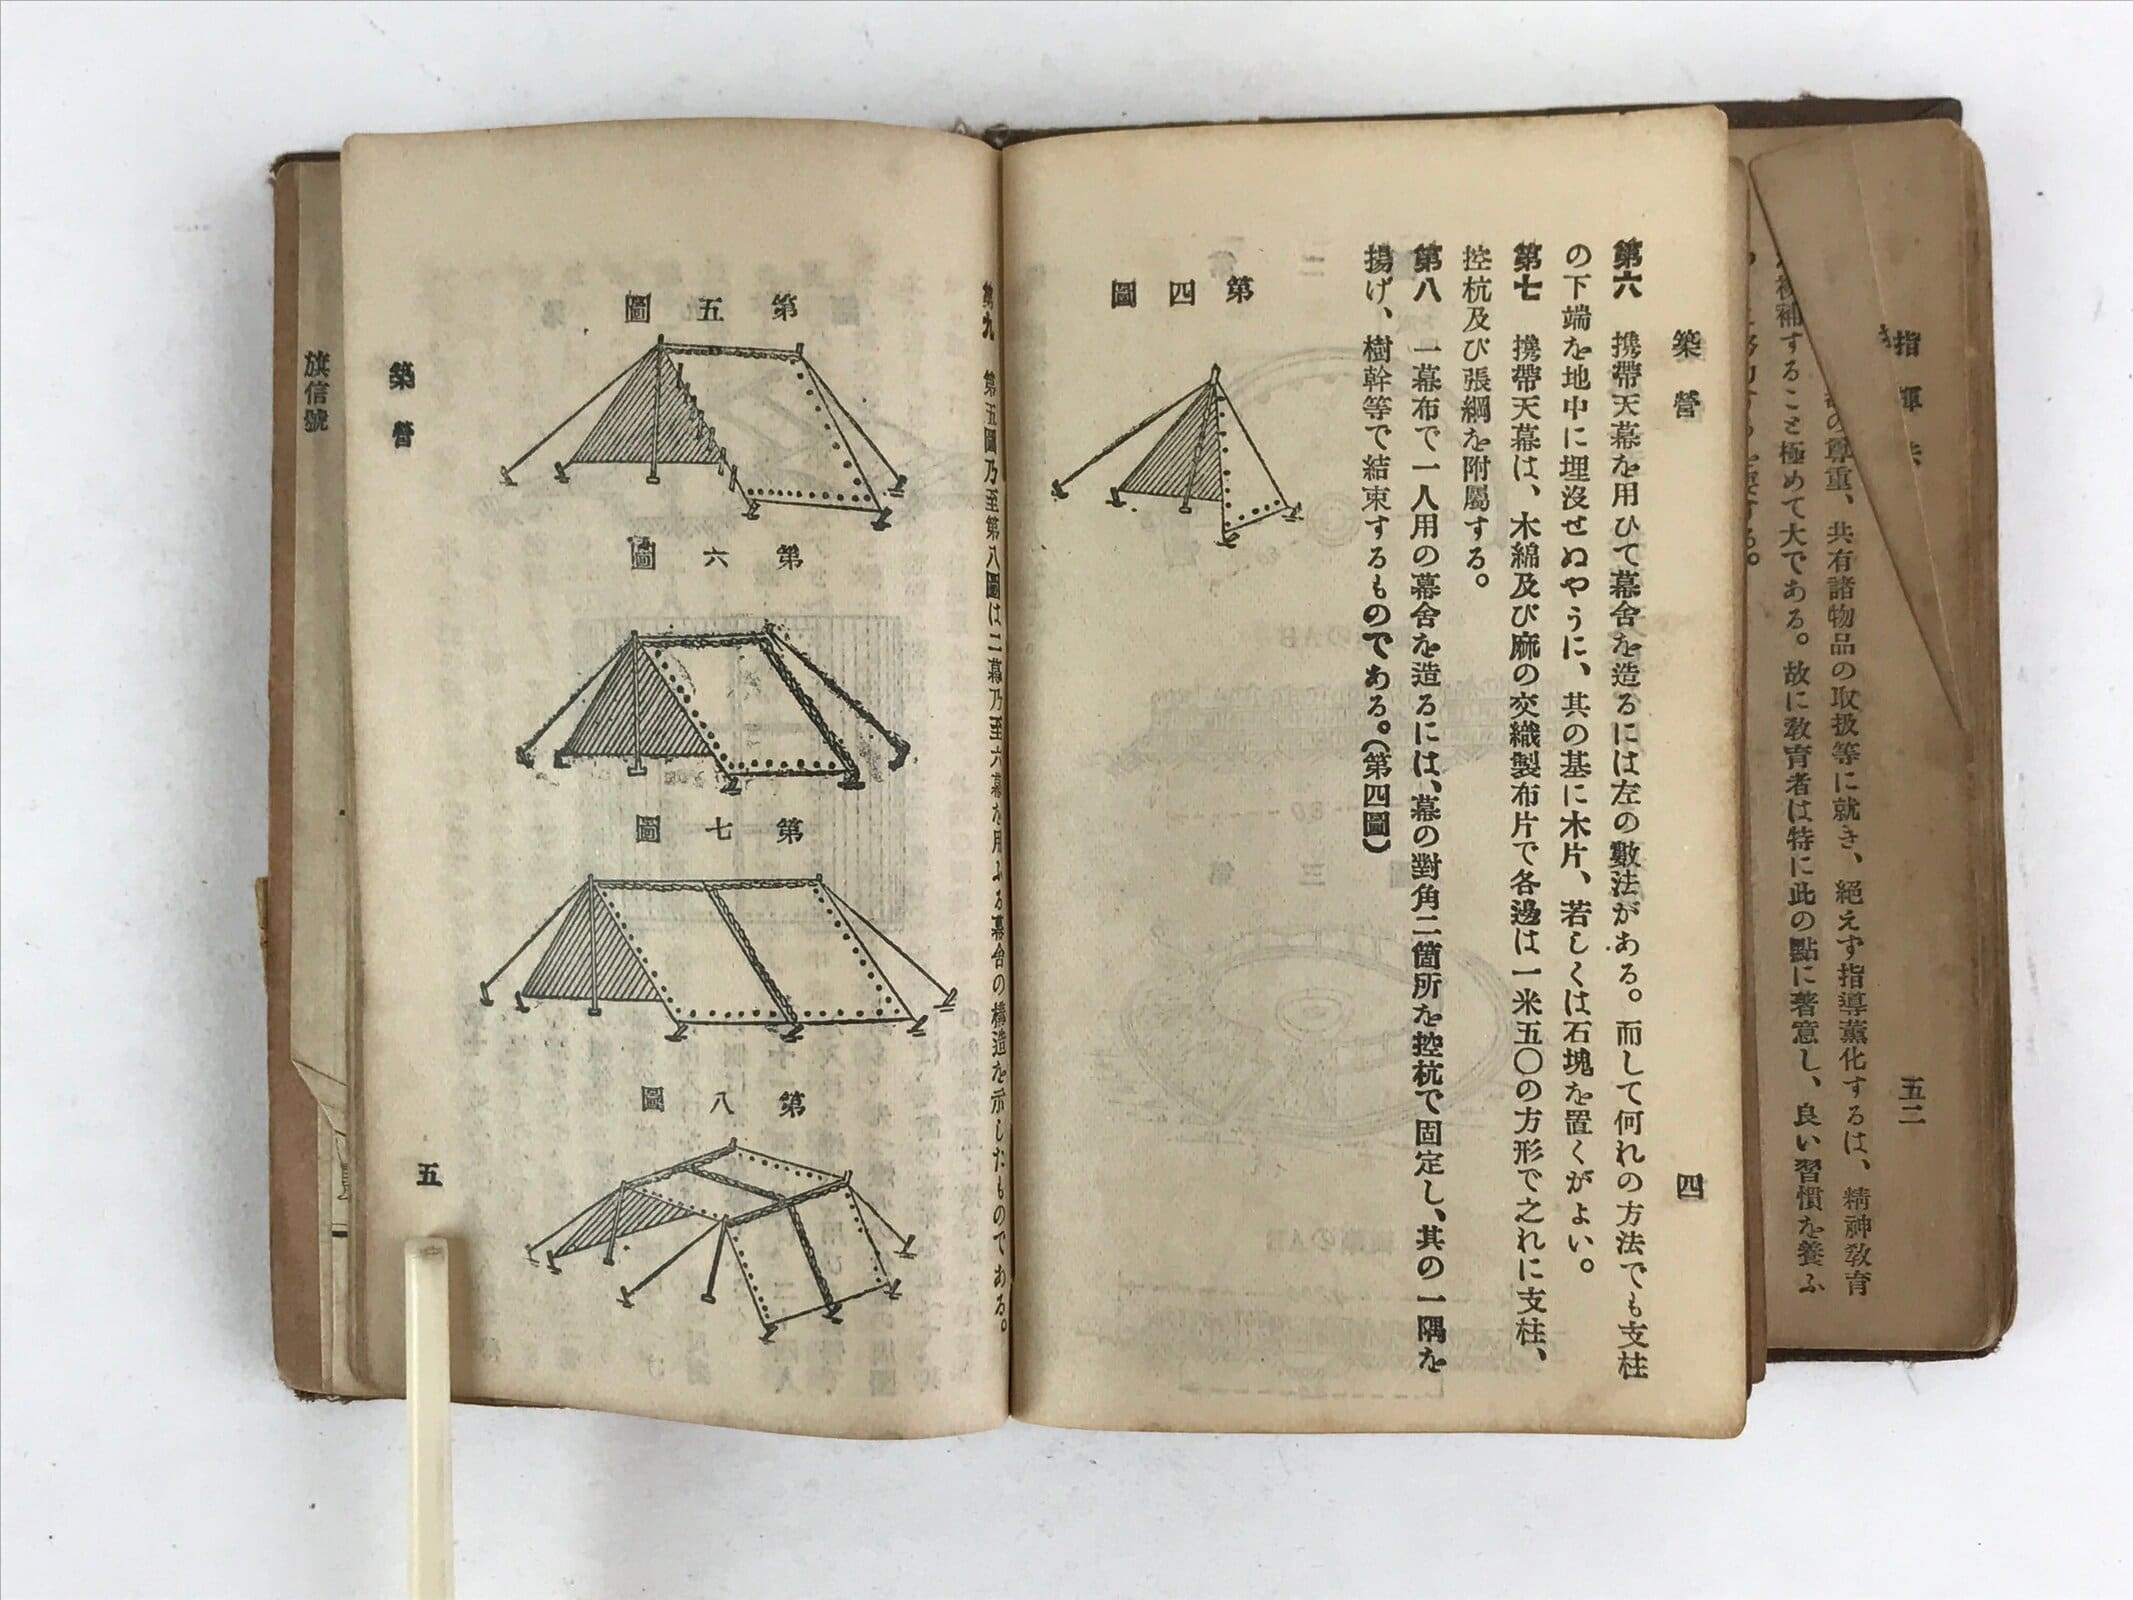 指揮法
の尊重、共有諸物品の取扱等に就き、絶えず指導薫化するは、精神教育
補することも極めて大である。故に教育者は特に此の點に著意し、良い習慣を養ふ
五二
築營
四
第六　携帶天幕を用ひて幕舍を造るには左の數法がある。而して何れの方法でも支柱
の下端を地中に埋沒せぬやうに、其の基に木片、若しくは石塊を置くがよい。
第七　携帶天幕は、木綿及び麻の交織製布片で各邊は一米五〇の方形で之れに支柱、
控杭及び張綱を附屬する。
第八　一幕布で一人用の幕舍を造るには、幕の對角二箇所を控杭で固定し、其の一隅を
揚げ、樹幹等で結束するものである。（第四圖）
第四圖
第九　第五圖乃至第八圖は二幕乃至六幕を用ふる幕舍の構造を示したものである。
第五圖
第六圖
第七圖
第八圖
築營
五
旗信號